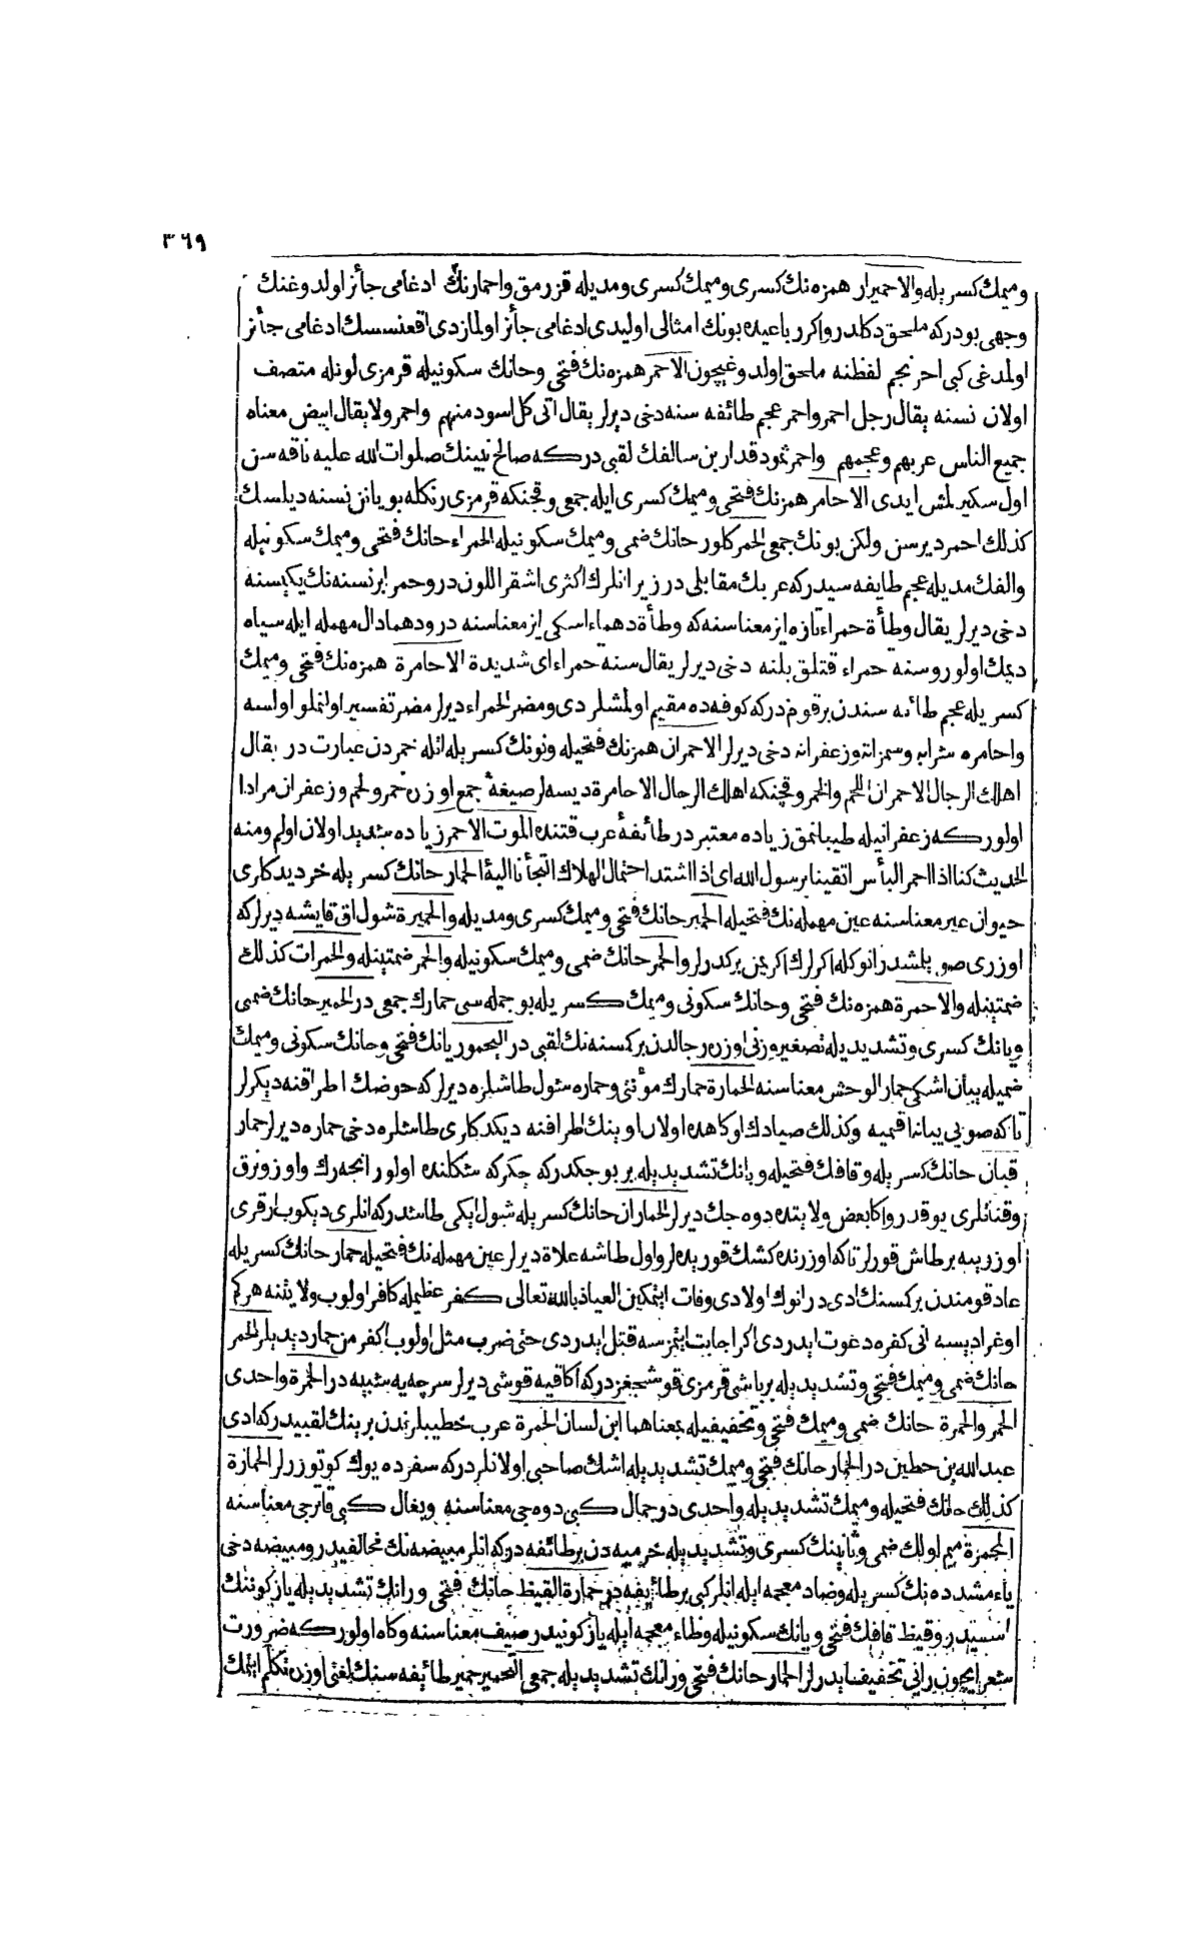 ٣٦٩
وميمك كسريله والاحميرار همزه نك كسرى وميمك كسرى ومديله قزرمق واحمارنك ادغامى جائز اولدوغنك
وجهى بودركه ملحق دكلدر واكر رباعيده بونك امثالى اوليدى ادغامى جائز اولمازدى اقعنسسك ادغامى جائز
اولمدغى كبى احرنجم لفظنه ملحق اولدوغيچون الاحمر همزه نك فتحى وحانك سكونيله قرمزى لونله متصف
اولان نسنه يقال رجل احمر واحمر عجم طائفه سنه دخى ديرلر يقال اتى كل اسود منهم واحمر ولا يقال ابيض معناه
جميع الناس عربهم وعجمهم واحمر ثمود قدار بن سالفك لقبى دركه صالح نبينك صلوات الله عليه ناقه سن
اول سكيرلمش ايدى الاحامر همزنك فتحى وميمك كسرى ايله جمعى وقچنكه قرمزى رنكله بويانن نسنه ديلسك
كذلك احمر ديرسن ولكن بونك جمعى الحمر كلور حانك ضمى وميمك سكونيله الحمراء حانك فتحى وميمك سكونيله
والفك مديله عجم طايفه سيدركه عربك مقابلى در زيرا انلرك اكثرى اشقر اللون در وحمرا بر نسنه نك يكيسنه
دخى ديرلر يقال وطأة حمراء تازه ايز معناسنه كه وطأة دهماء اسكى ايز معناسنه در ودهما دال مهمله ايله سياه
ديمك اولور وسنه حمراء قتلق يلنه دخى ديرلر يقال سنة حمراء اى شديدة الاحامرة همزه نك فتحى وميمك
كسريله عجم طائفه سندن بر قوم دركه كوفه ده مقيم اولمشلردى ومضر الحمراء ديرلر مضر تفسير اولنملو اولسه
واحامره شرابه وسمزاته وزعفرانه دخى ديرلر الاحمران همزنك فتحيله ونونك كسريله اتله خمردن عبارت در يقال
اهلك الرجال الاحمران اللحم والخمر وقچنكه اهلك الرجال الاحامرة ديسه لر صيغۀ جمع اوزره خمر ولحم وزعفران مراد
اولور كه زعفرانيله طيبلنمق زياده معتبر در طائفۀ عرب قتنده الموت الاحمر زياده شديد اولان اولم ومنه
الحديث كنا اذا احمر البأس اتقينا برسول الله اى اذا اشتد احتمال الهلاك التجأنا اليه الحمار حانك كسريله خر ديدكلرى
حيوان عير معناسنه عين مهمله نك فتحيله الحمير حانك فتحى وميمك كسرى ومديله والحميرة شول اق قايشه ديرلركه
اوزرى صويلمشدر انوكله اكرلرك اكريمن بركدرلر والحمر حانك ضمى وميمك سكونيله والحمر ضمتينله والحمرات كذلك
ضمتينله والاحمرة همزه نك فتحى وحانك سكونى وميمك كسريله بو جمله سى حمارك جمعى در الحمير حانك ضمى
ويانك كسرى وتشديديله تصغير وزنى اوزره رجالدن بر كسنه نك لقبى در اليحمور يانك فتحى وحانك سكونى وميمك
ضميله يبان اشكى حمار الوحش معناسنه الحمارة حمارك مؤنثى وحماره شول طاشلره ديرلركه حوضك اطرافنه ديكرلر
تاكه صويى يبانه اقميه وكذلك صيادك اوكاهده اولان اوينك اطرافنه ديكدكلرى طاشلره دخى حماره ديرلر حمار
قبان حانك كسريله وقافك فتحيله وبانك تشديديله بر بوجكدركه چكركه شكلنده اولور انجه رك واوزونرق
وقناتلرى يوقدر واكا بعض ولايتده دوه جك ديرلر الحماران حانك كسريله شول ايكى طاشدركه انلرى ديكوب انلرقرى
اوزرينه بر طاش قورلر تاكه اوزرنده كشك قوريده لر واول طاشه علاة ديرلر عين مهمله نك فتحيله حمار حانك كسريله
عاد قومندن بر كسنك ادى در انوك اولادى وفات ايتمكين العياذ بالله تعالى كفر عظيمله كافر اولوب ولايتنه هركم
اوغراديسه انى كفره دعوت ايدردى اكر اجابت ايتمزسه قتل ايدردى حتى ضرب مثل اولوب اكفر من حمار ديديلر الحمر
حانك ضمى وميمك فتحى وتشديديله بر باشى قرمزى قوشجغزدركه اكا قيه قوشى ديرلر سرچه يه شبيه در الحمرة واحدى
الحمر والحمرة حانك ضمى وميمك فتحى وتخفيفيله بمعناهما ابن لسان الحمرة عرب خطيبلرندن برينك لقبيدركه ادى
عبد الله بن حطين در الحمار حانك فتحى وميمك تشديديله اشك صاحبى اولانلردركه سفرده يوك كوتوررلر الحمارة
كذلك حانك فتحيله وميمك تشديديله واحدى در جمال كبى دوه جى معناسنه وبغال كبى قاترجى معناسنه
المحمرة ميم اولك ضمى وثانينك كسرى وتشديديله خرميه دن بر طائفه دركه انلر مبيضه نك مخالفيدر ومبيضه دخى
ياء مشدده نك كسريله وضاد معجمه ايله انلر كبى بر طائفه در حمارة القيظ حانك فتحى ورانك تشديديله ياز كوننك
اسسيدر وقيظ قافك فتحى ويانك سكونيله وظاء معجمه ايله ياز كونيدر صيف معناسنه وكاه اولور كه ضرورت
شعر ايچون رايى تخفيف ايدرلر الحمار حانك فتحى ورانك تشديديله جمعى التحمير حمير طائفه سنك لغتى اوزره تكلم ايتمك